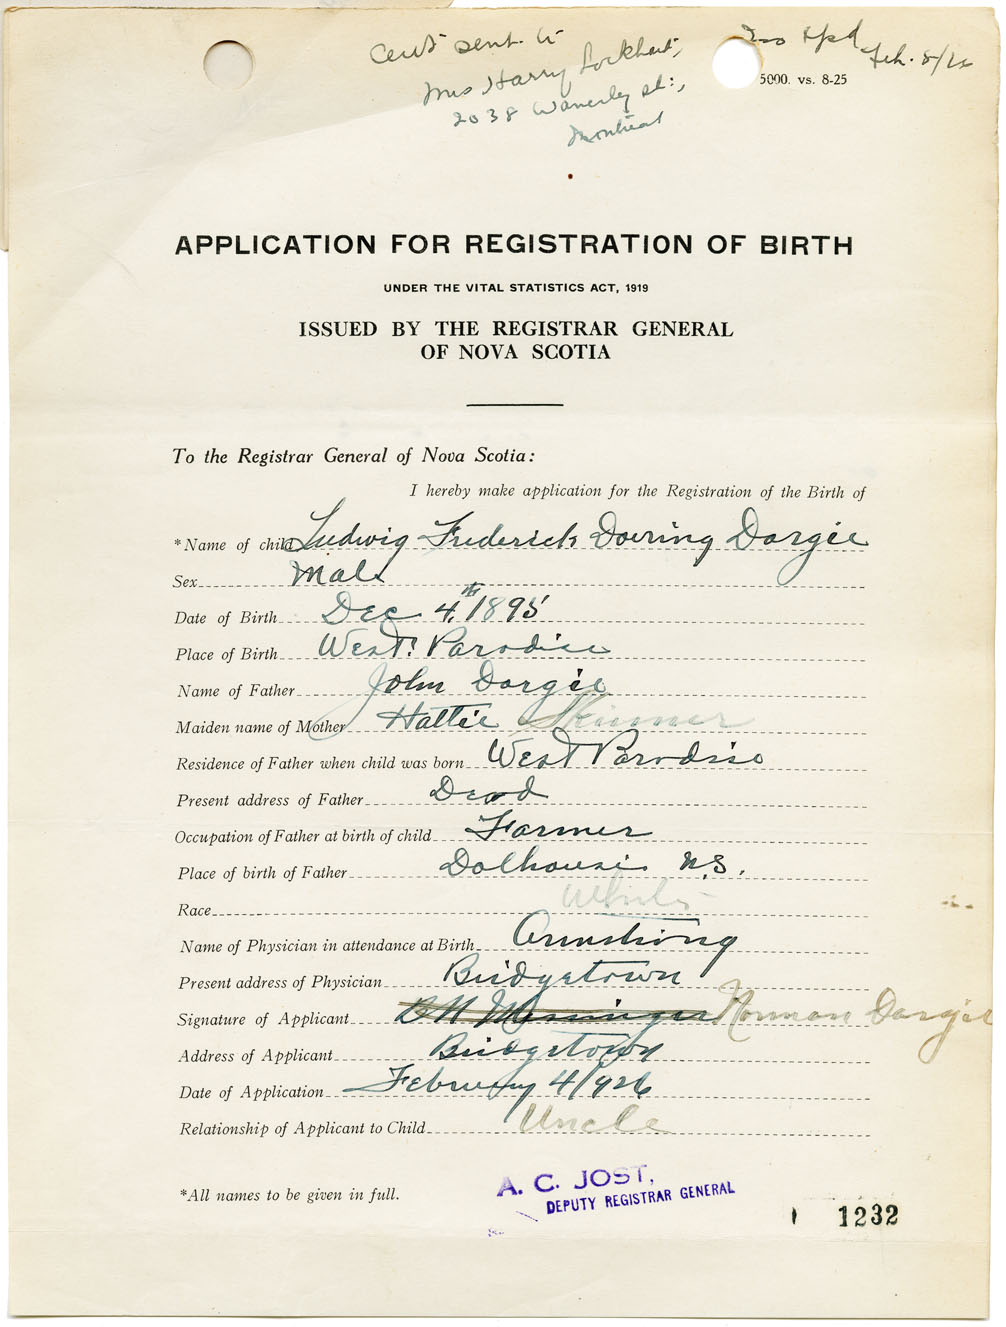 Cert sent to
Mrs Harry Lockhart,
2038 Waverley St.,
Montreal
Feb. 8/26
5000. vs. 8-25
APPLICATION FOR REGISTRATION OF BIRTH
UNDER THE VITAL STATISTICS ACT, 1919
ISSUED BY THE REGISTRAR GENERAL
OF NOVA SCOTIA
To the Registrar General of Nova Scotia:
I hereby make application for the Registration of the Birth of
*Name of child Ludwig Frederick Doering Dargie
Sex Male
Date of Birth Dec 4th 1895
Place of Birth West Paradise
Name of Father John Dargie
Maiden name of Mother Hattie Skinner
Residence of Father when child was born West Paradise
Present address of Father Dead
Occupation of Father at birth of child Farmer
Place of birth of Father Dalhousie N.S.
Race White
Name of Physician in attendance at Birth Armstrong
Present address of Physician Bridgetown
Signature of Applicant Messinger Norman Dargie
Address of Applicant Bridgetown
Date of Application February 4/926
Relationship of Applicant to Child Uncle
*All names to be given in full.
A. C. JOST,
DEPUTY REGISTRAR GENERAL
1232